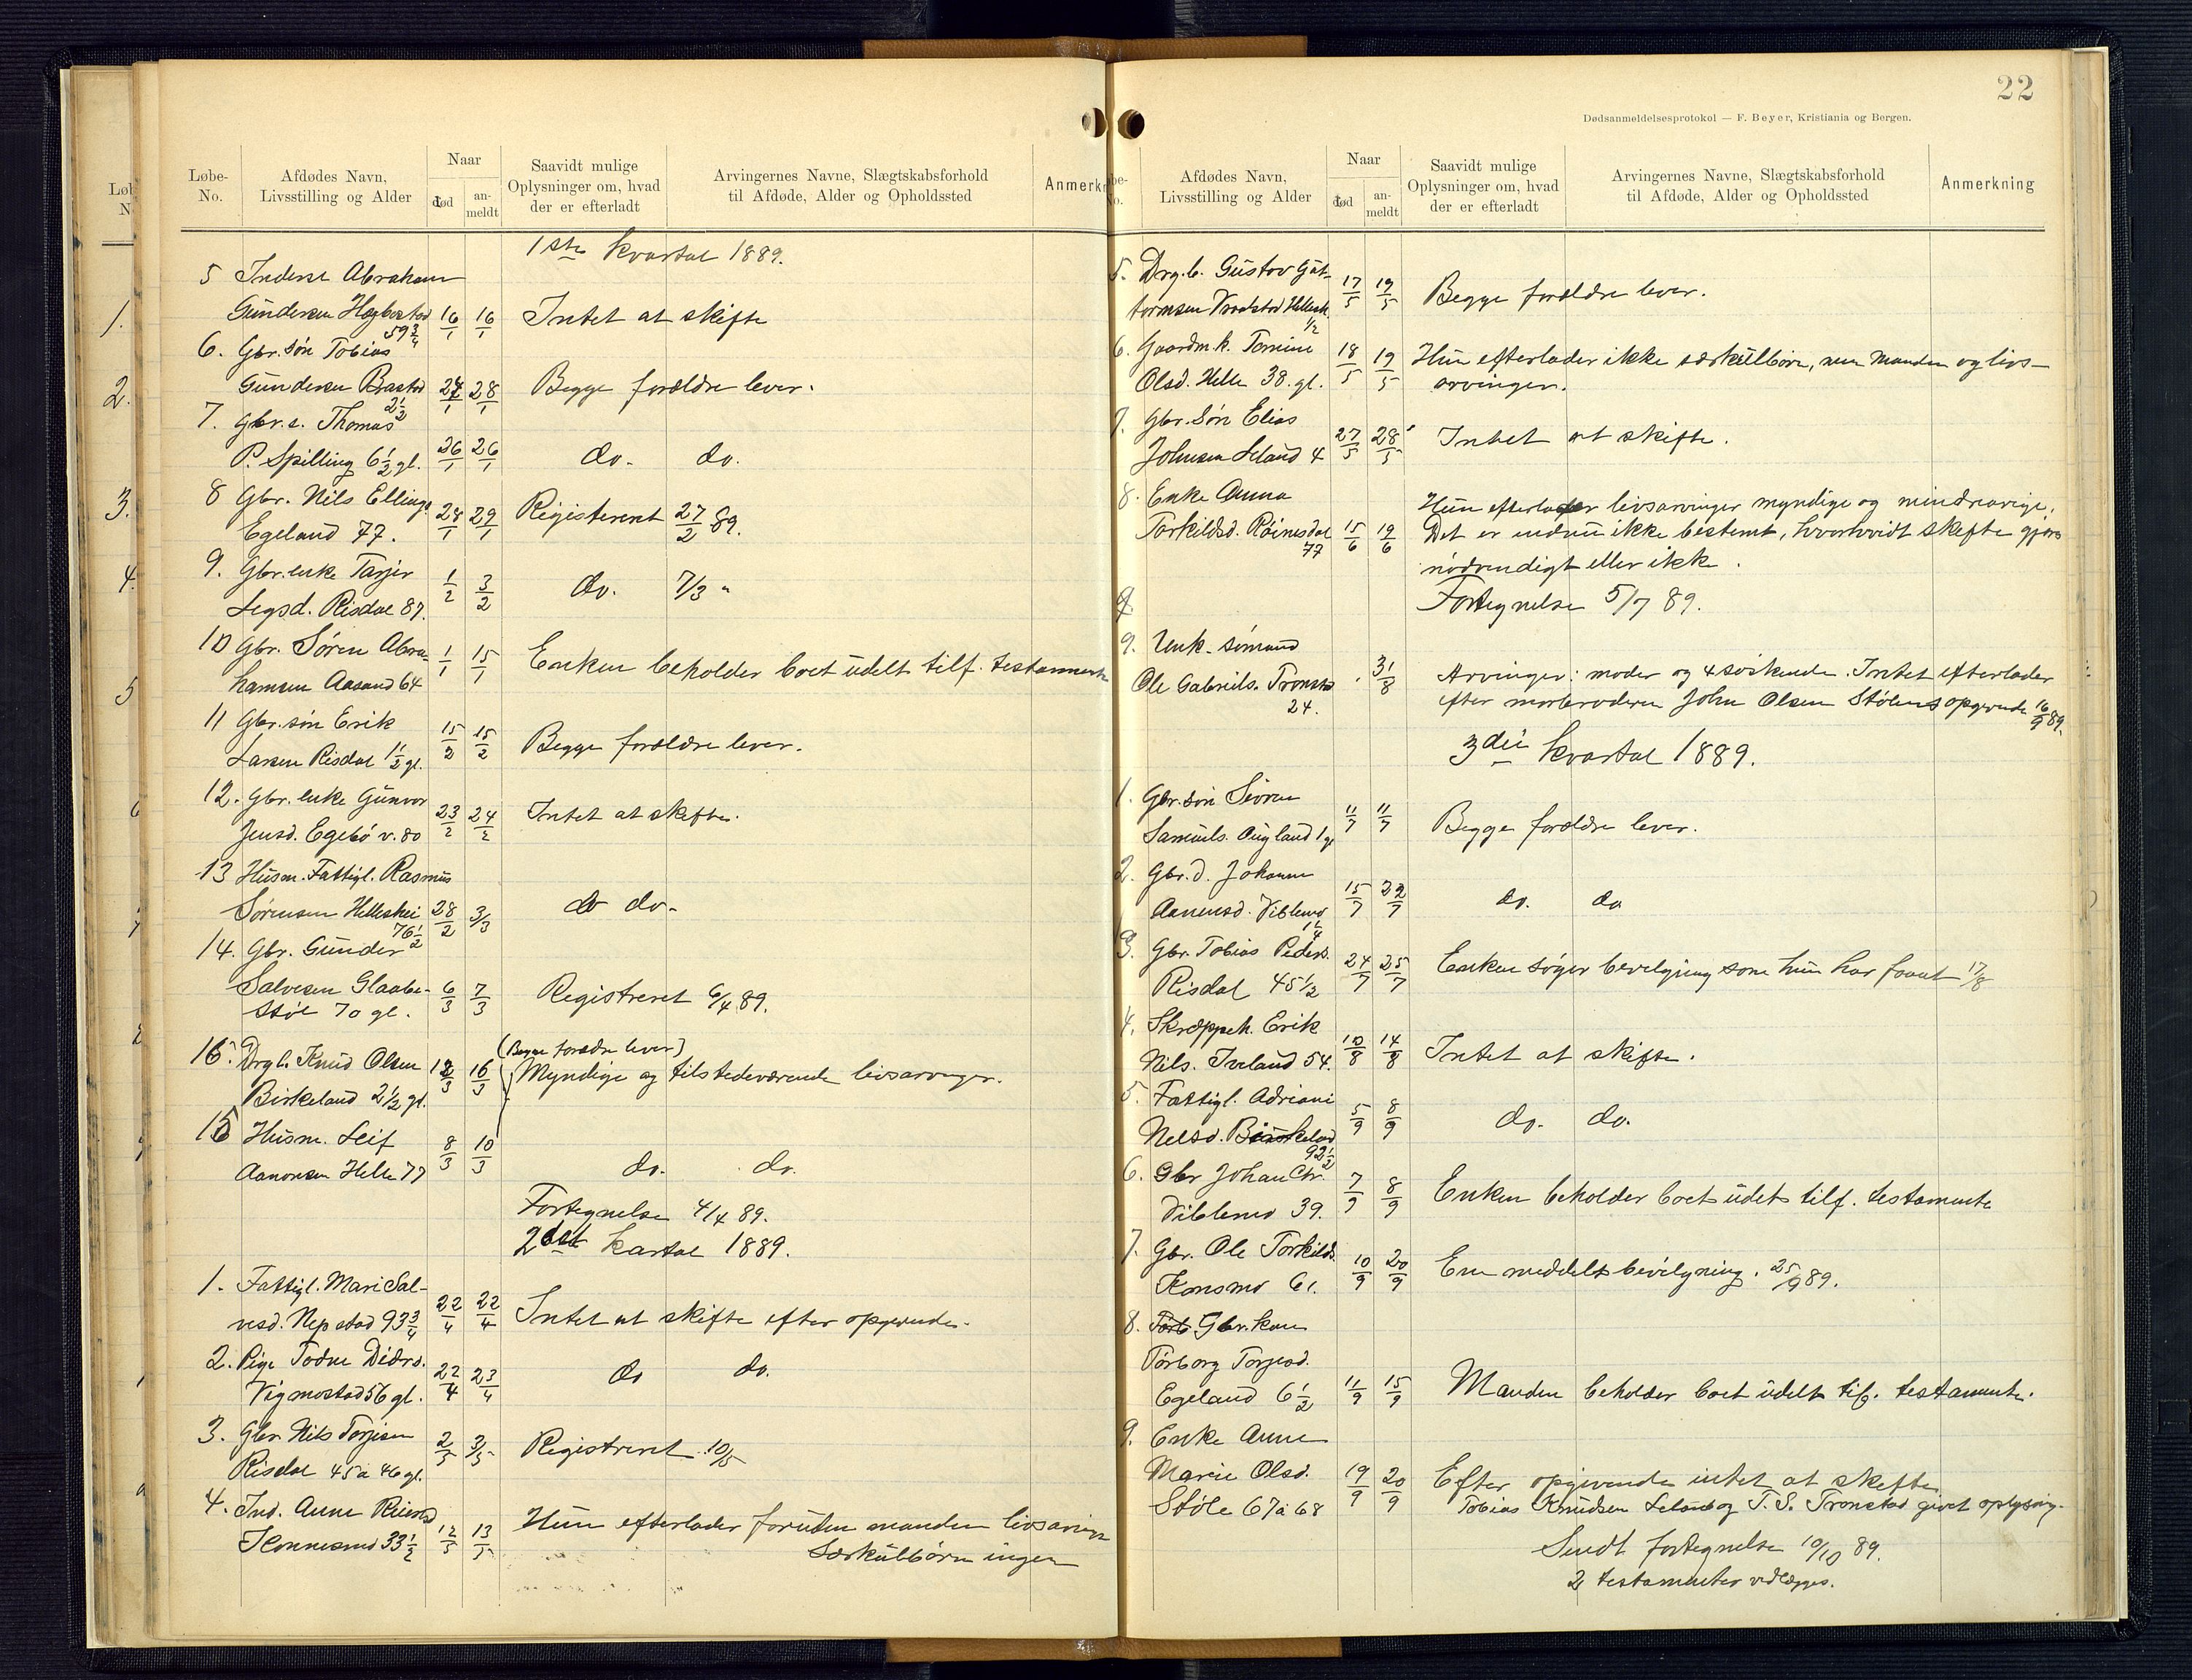 22
Dødsanmeldelsesprotokol — F. Beyer, Kristiania og Bergen.
Løbe-No.
Afdødes Navn, Livsstilling og Alder
Naar
død
an-meldt
Saavidt mulige Oplysninger om, hvad der er efterladt
Arvingernes Navne, Slægtskabsforhold til Afdøde, Alder og Opholdssted
Anmerk
1ste kvartal 1889.
5 Inderst Abraham
Gundersen Hægbostad 59 3/4 16/1 16/1 Intet at skifte
6. Gbr. søn Tobias
Gundersen Bastad 2 1/2 27/1 28/1 Begge forældre lever.
7. Gbr. s. Thomas
P. Spilling 6 1/2 gl. 26/1 26/1 do. do.
8 Gbr. Nils Ellings.
Egeland 77. 28/1 29/1 Registreret 27/2 89.
9. Gbr. enke Tarjer
Legsd. Risdal 87. 1/2 3/2 do. 7/3 "
10 Gbr. Søren Abra-
hamsen Aasand 64 1/1 15/1 Enken beholder boet udelt tilf. testamente
11 Gbr. søn Erik
Larsen Risdal 1 1/2 gl. 15/2 15/2 Begge forældre lever.
12. Gbr. enke Gunvor
Jensd. Egebø v. 80 23/2 24/2 Intet at skifte.
13 Husm. Fattigl. Rasmus
Sørensen Helleshei 76 1/2 28/2 3/3 do do.
14. Gbr. Gunder
Salvesen Glaabe-
støl 70 gl. 6/3 7/3 Registreret 6/4 89.
16. Drgb. Knud Olsen
Birkeland 2 1/2 gl. 12/3 16/3 (Begge forældre lever)
Myndige og tilstedeværende livsarvinger.
15 Husm. Leif
Aanonsen Helle 77 8/3 10/3 do. do.
Fortegnelse 4/4 89.
2det kartal 1889.
1. Fattigl. Mari Sal-
vesd. Nepstad 93 3/4 22/4 22/4 Intet at skifte efter opgivende.
2. Pige Todne Didrs.
Vigmostad 56 gl. 22/4 23/4 do do.
3. Gbr. Nils Torjisen
Risdal 45 a 46 gl. 2/5 3/5 Registreret 10/5
4. Ind. Anne Reiersd
Konnesmo 33 1/2 12/5 13/5 Hun efterlader foruden manden livsarvinger
Særkulbørn ingen
Løbe-No.
Afdødes Navn, Livsstilling og Alder
Naar
død
an-meldt
Saavidt mulige Oplysninger om, hvad der er efterladt
Arvingernes Navne, Slægtskabsforhold til Afdøde, Alder og Opholdssted
Anmerkning
5. Drg. b. Gustav Gut-
tormsen 1/2 17/5 19/5 Begge forældre lever.
6. Gaardm. k. Tomine
Olsd. Helle 38. gl. 18/5 19/5 Hun efterlader ikke særkulbørn, men manden og livs-
arvinger.
7. Gbr. søn Elias
Johnsen Leland 4 27/5 28/5 Intet at skifte.
8. Enke Anna
Torkildsd. Røinesdal 77 15/6 19/6 Hun efterlader livsarvinger myndige og mindreaarige.
Det er endnu ikke bestemt, hvorvidt skifte gjøres
nødvendigt eller ikke.
Fortegnelse 5/7 89.
9. Unk. sømand
Ole Gabriels. Tronstad 24. 31/8 Arvinger: moder og 4 søskende. Intet efterlader
efter morbroderen John Olsen Stølens opgivende 16/9 89.
3die kvartal 1889.
1. Gbr. søn Søren
Samuels. Øugland 1 gl 11/7 11/7 Begge forældre lever.
2. Gbr. d. Johanne
Aanensd. Viblemo 15/7 22/7 do. do
3. Gbr. Tobias Peders.
Risdal 45 1/2 24/7 25/7 Enken søger bevilgning som hun har faaet 17/8
4. Skræpph. Erik
Nils. Iveland 54. 10/8 14/8 Intet at skifte.
5. Fattigl. Adriani
Nelsd. Birkeland 92 1/2 5/9 8/9 do. do.
6. Gbr Johan Chr.
Viblemo 39. 7/9 8/9 Enken beholder boet udelt tilf. testamente
7. Gbr. Ole Torkilds.
Konsmo 61. 10/9 20/9 Een meddelt bevilgning. 25/9 89.
8. Torb. Gbr. kone
Torborg Torjesd.
Egeland 6 1/2 11/9 15/9 Manden beholder boet udelt tilf. testamente.
9. Enke Anne
Marie Olsd.
Støle 67 a 68 19/9 20/9 Efter opgivende intet at skifte
Tobias Knudsen Leland og T. S. Tronstad givet oplysning.
Sendt fortegnelse 10/10 89.
2 testamenter vedlægges.